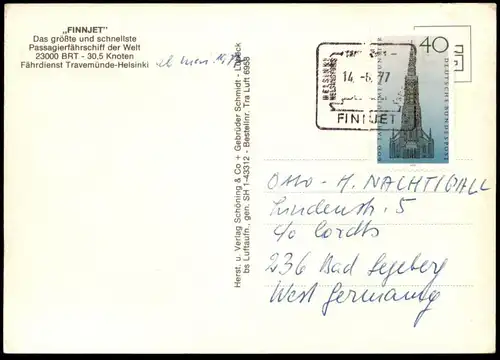 „FINNJET"
Das größte und schnellste
Passagierfährschiff der Welt
23000 BRT - 30,5 Knoten
Fährdienst Travemünde-Helsinki
Herst. u. Verlag Schöning & Co + Gebrüder Schmidt - Lübeck
bs Luftaufn., gen. SH 1-43312 - Bestellnr. Tra Luft 6938
HELSINKI
HELSINGFORS
14.-6.77
FINNJET
40
DEUTSCHE BUNDESPOST
Otto - H. NACHTIGALL
Lindenstr. 5
c/o Cordts
236 Bad Segeberg
West Germany